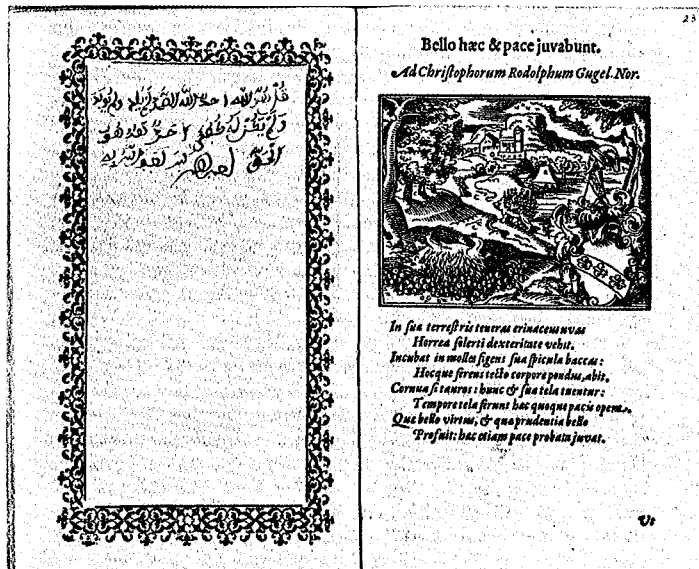 قل هو الله احد الله الصمد لم يلد ولم يولد
ولم يكن له كفوا احد هو
الحق
23
Bello hæc & pace juvabunt.
Ad Christophorum Rodolphum Gugel. Nor.
In sua terrestris teneras erinaceus uvas
Horrea solerti dexteritate vehit.
Incubat in molles figens sua spicula baccas:
Hocque ferens tecto corpore pondus, abit.
Cornua si tauros: hunc & sua tela tuentur:
Tempore tela ferunt hæc quoque pacis opem.
Quæ bello virtus, & quæ prudentia bello
Profuit: hæc etiam pace probata juvat.
Ut